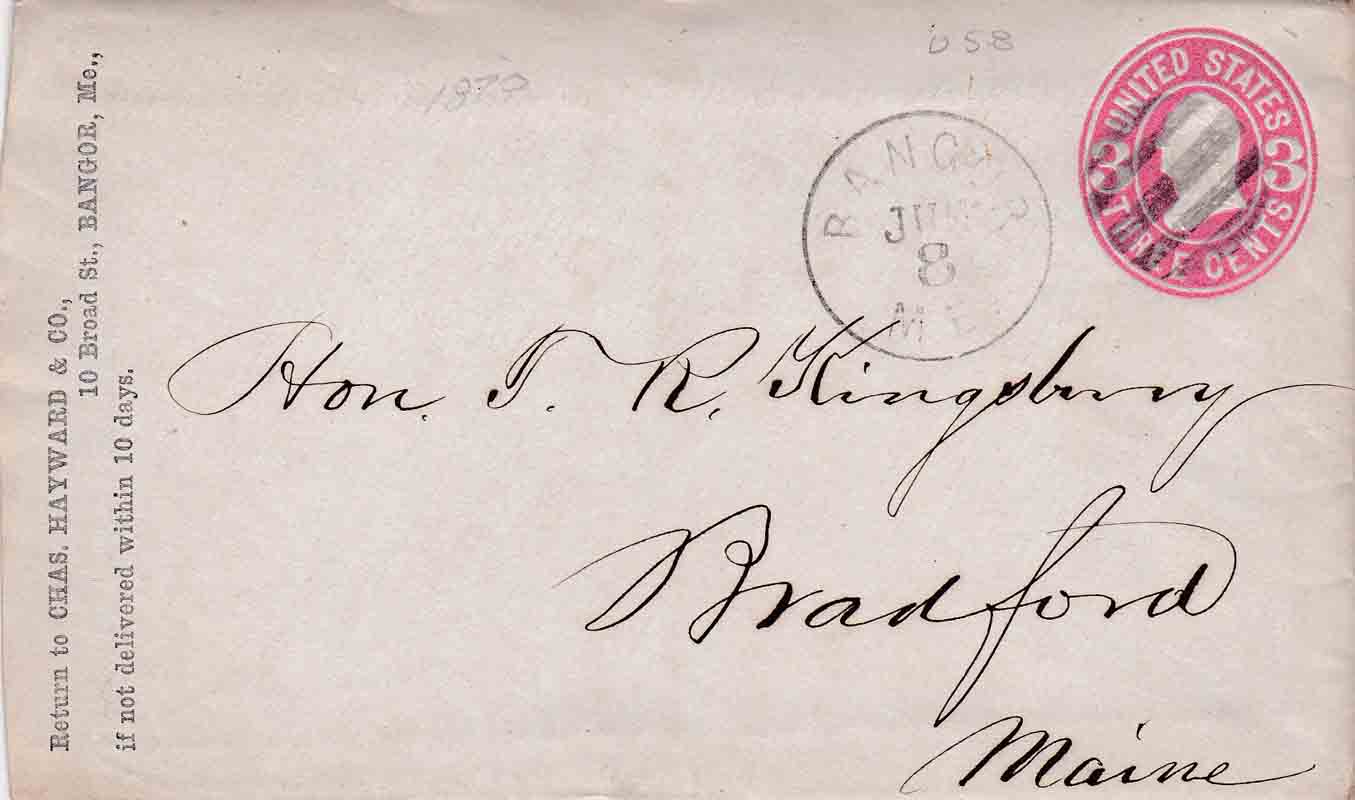 Return to CHAS. HAYWARD & CO.,
10 Broad St., BANGOR, Me.,
if not delivered within 10 days.
1870
U58
UNITED STATES
3 3
THREE CENTS
BANGOR
8
ME
Hon. T. R. Kingsbury
Bradford
Maine